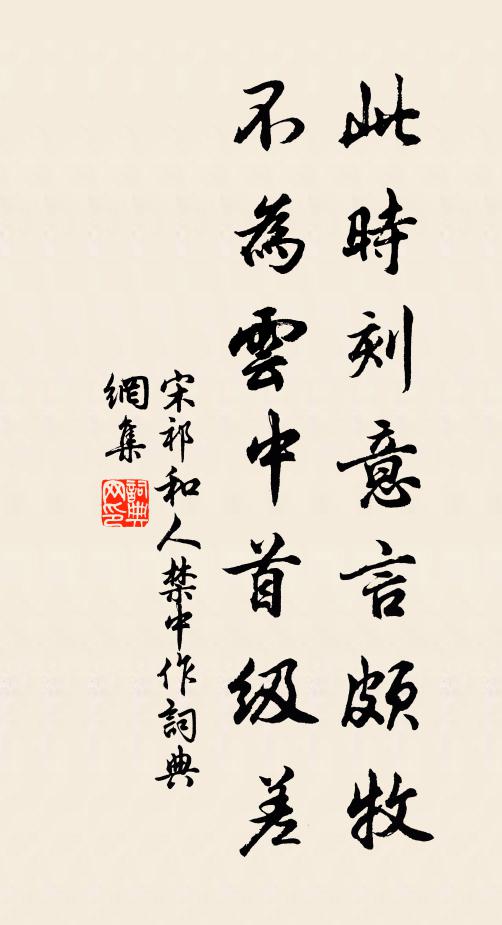 此時刻意言頗牧
不為雲中首級差
宋祁和人禁中作詞典
網集
詞典網印